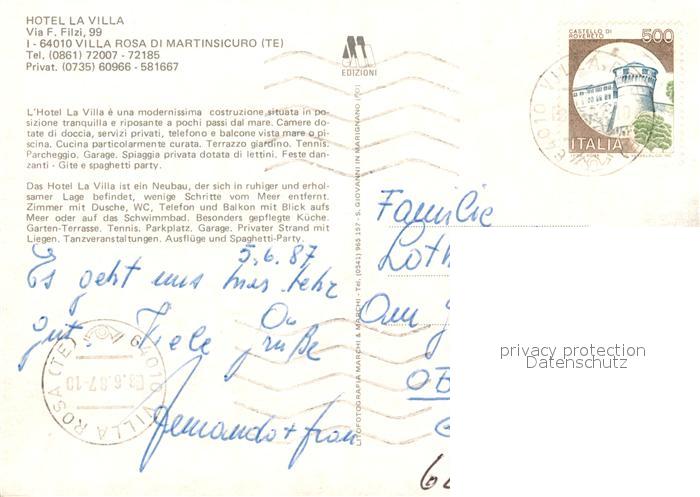 HOTEL LA VILLA
Via F. Filzi, 99
I - 64010 VILLA ROSA DI MARTINSICURO (TE)
Tel. (0861) 72007 - 72185
Privat. (0735) 60966 - 581667
L'Hotel La Villa è una modernissima costruzione situata in po-
sizione tranquilla e riposante a pochi passi dal mare. Camere do-
tate di doccia, servizi privati, telefono e balcone vista mare o pi-
scina. Cucina particolarmente curata. Terrazzo giardino. Tennis.
Parcheggio. Garage. Spiaggia privata dotata di lettini. Feste dan-
zanti - Gite e spaghetti party.
Das Hotel La Villa ist ein Neubau, der sich in ruhiger und erhol-
samer Lage befindet, wenige Schritte vom Meer entfernt.
Zimmer mit Dusche, WC, Telefon und Balkon mit Blick aufs
Meer oder auf das Schwimmbad. Besonders gepflegte Küche.
Garten-Terrasse. Tennis. Parkplatz. Garage. Privater Strand mit
Liegen. Tanzveranstaltungen. Ausflüge und Spaghetti-Party.
5.6.87
Es geht uns hier sehr
gut. Viele Grüße
64010 VILLA ROSA (TE)
EDIZIONI
LITOFOTOGRAFIA MARCHI & MARCHI - Tel. (0541) 965 157 - S. GIOVANNI IN MARIGNANO (FO)
CASTELLO DI
ROVERETO
500
ITALIA
64010 VILLA
Familie
Loth
Am
privacy protection
Datenschutz